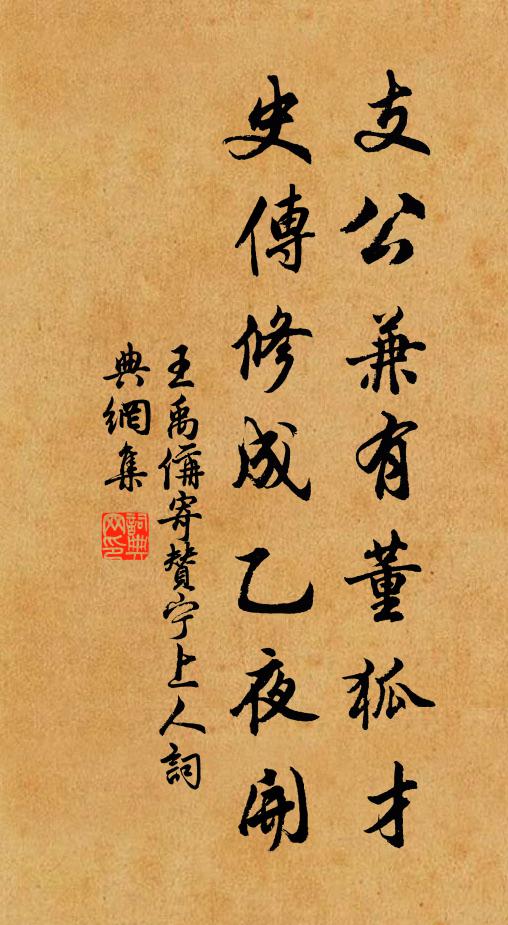 支公兼有董狐才
史傳修成乙夜開
王禹偁寄贊宁上人詞
典網集
詞典
网印